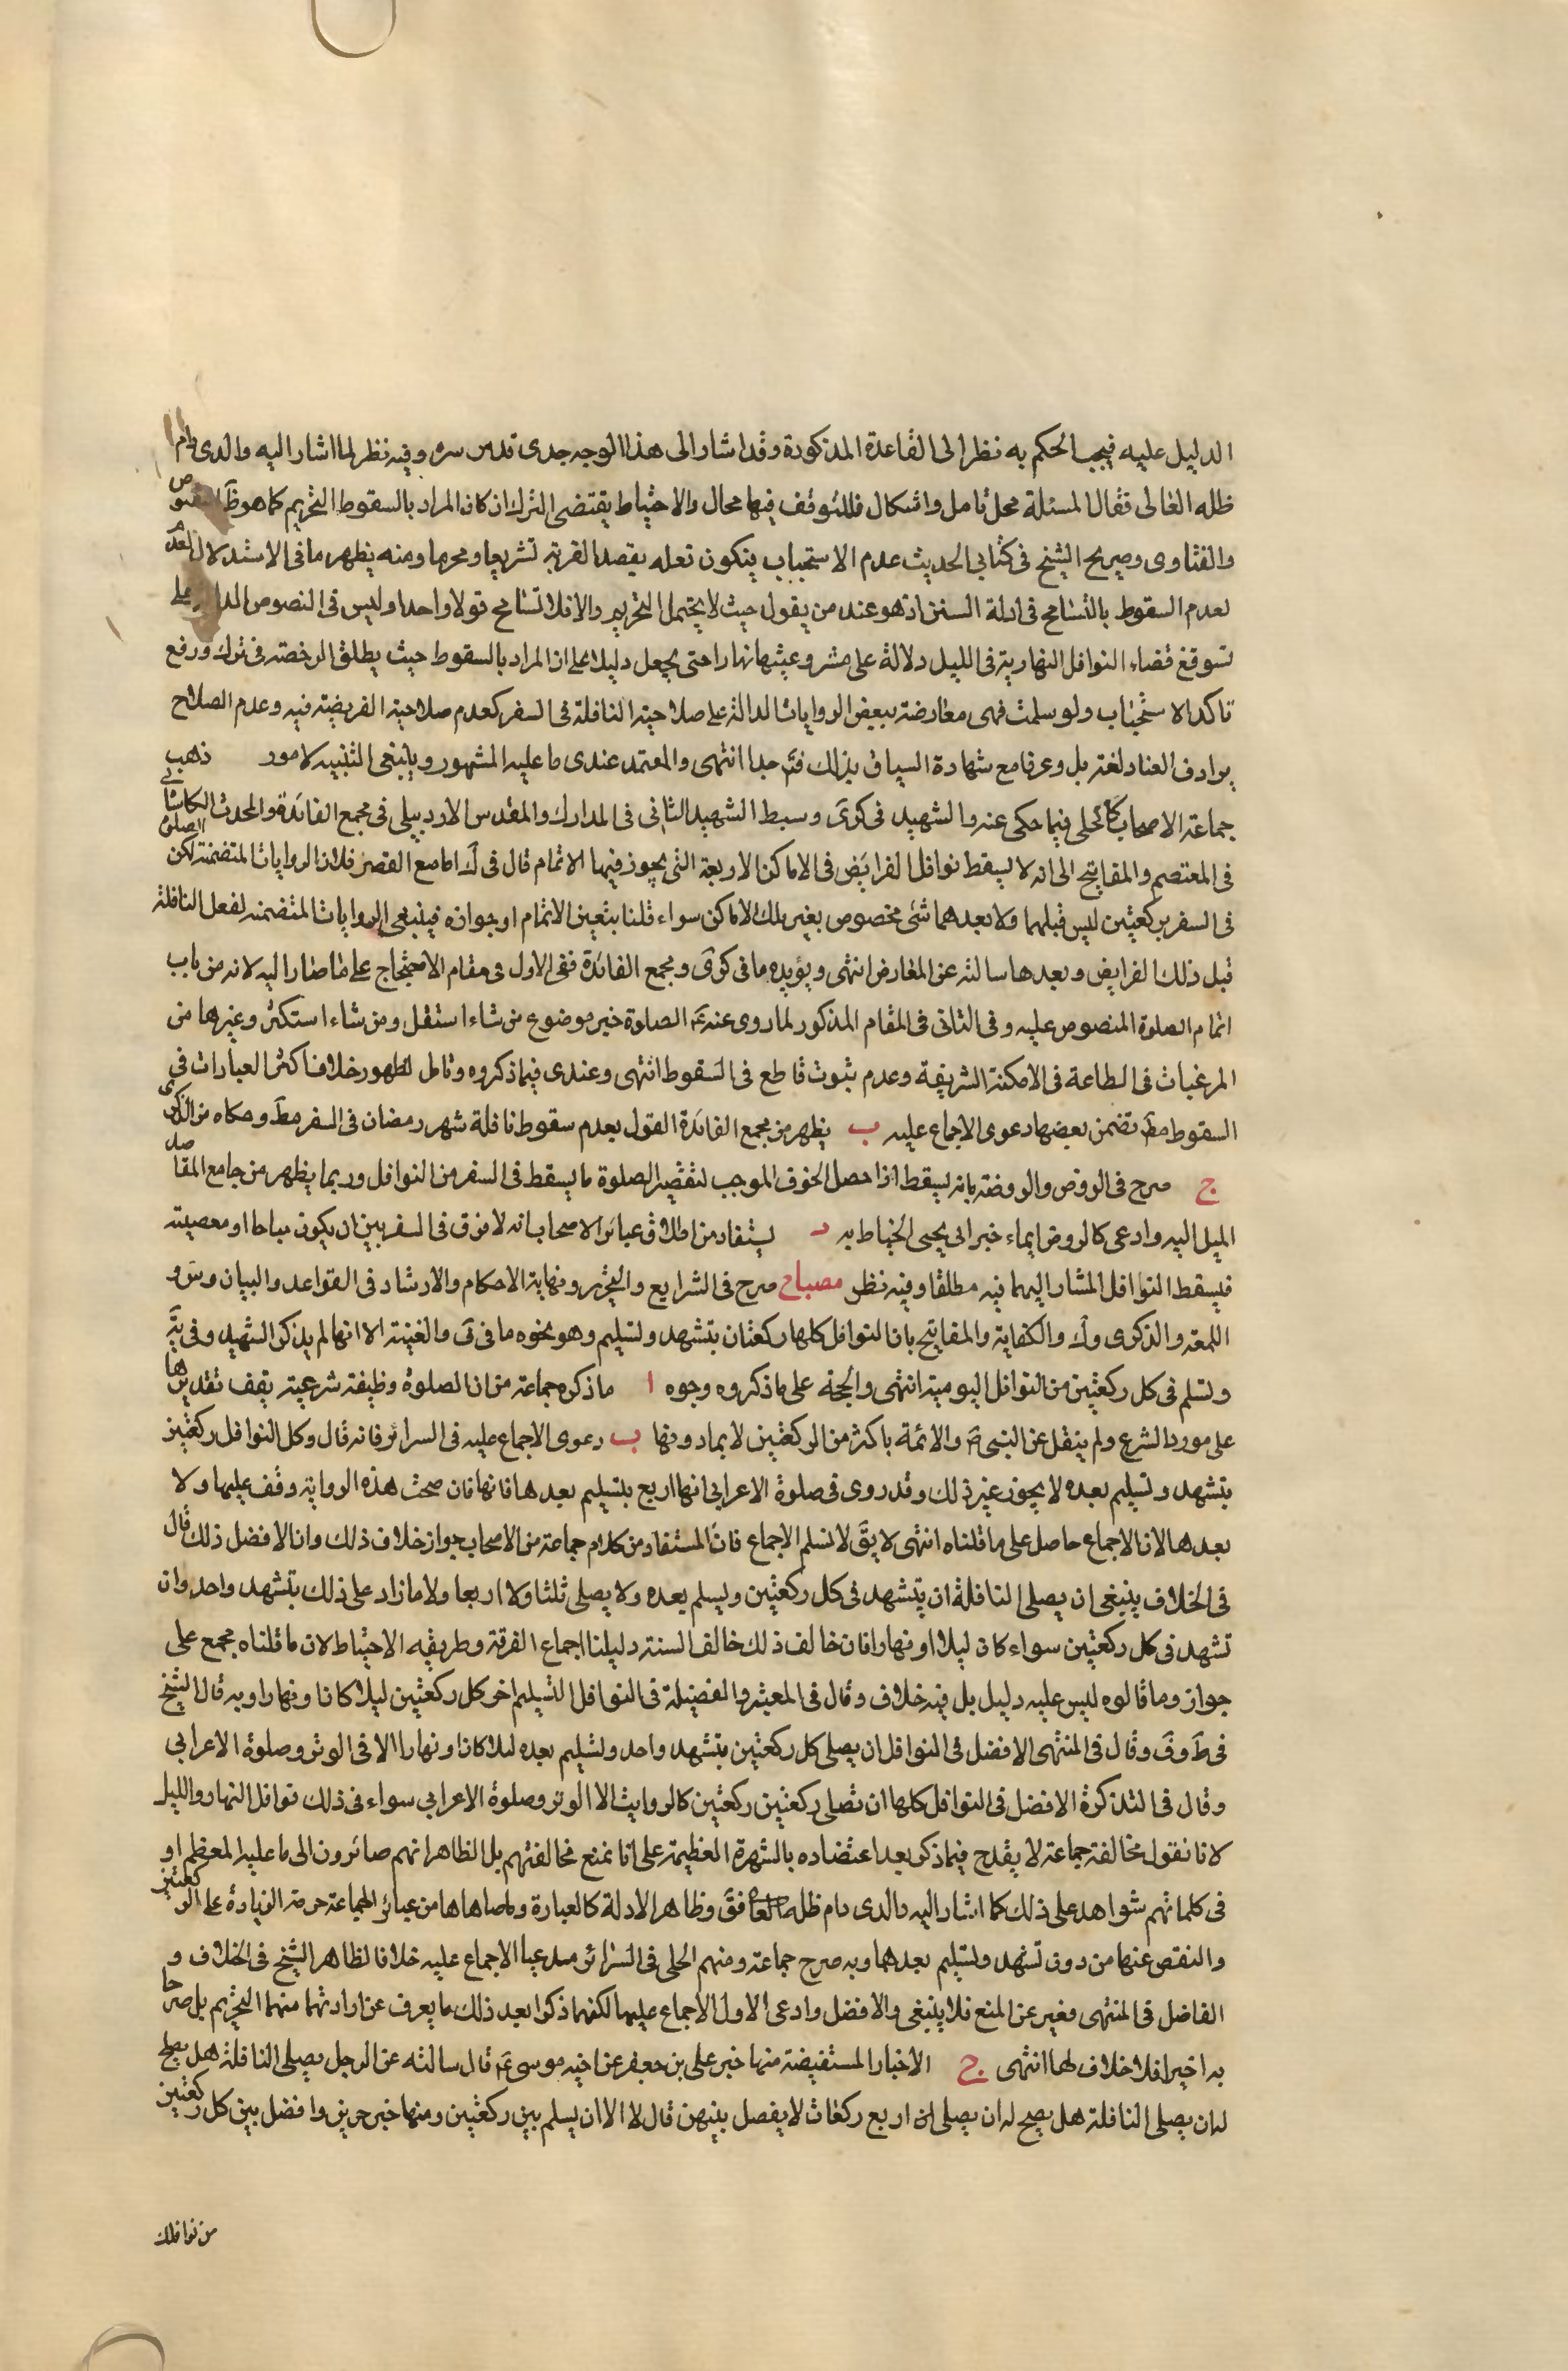 الدليل عليه فيجب الحكم به نظرا الى القاعدة المذكورة وقد اشار الى هذا الوجه جدى قدس سره وفيه نظر لما اشار اليه والدى دام
ظله العالى فقال المسئلة محل تامل واشكال فللتوقف فيها مجال والاحتياط يقتضى الترك ان كان المراد بالسقوط التحريم كما هو ظَ النصوص
والفتاوى وصريح الشيخ فى كتابى الحديث عدم الاستحباب فيكون فعله بقصد القربة تشريعا ومحرما ومنه يظهر ما فى الاستدلال
لعدم السقوط بالتسامح فى ادلة السنن اذ هو عند من يقول حيث لا يحتمل التحريم والا فلا تسامح قولا واحدا وليس فى النصوص الدالة على
تسويغ قضاء النوافل النهارية فى الليل دلالة على مشروعيتها نهارا حتى يجعل دليلا على ان المراد بالسقوط حيث يطلق الرخصة فى ترك ورفع
تاكد الاستحباب ولو سلمت فهى معارضة ببعض الروايات الدالة على صلاحية النافلة فى السفر كعدم صلاحية الفريضة فيه وعدم الصلاح
يرادف الفساد لغة بل وعرفا مع شهادة السياق بذلك فتَ جدا انتهى والمعتمد عندى ما عليه المشهور وينبغى التنبيه لامور ذهب
جماعة الاصحاب كالحلى فيما حكى عنه والشهيد فى كرىَ وسبط الشهيد الثانى فى المدارك والمقدس الاردبيلى فى مجمع الفائدة والمحدث الكاشانى
فى المعتصم والمفاتيح الى انه لا يسقط نوافل الفرايض فى الاماكن الاربعة التى يجوز فيها الاتمام قال فى كَ اما مع القصر فلان الروايات المتضمنة لكن الصلوة
فى السفر ركعتين ليس قبلهما ولا بعدهما شئ مخصوص بغير تلك الاماكن سواء قلنا بتعين الاتمام او جوازه فينبغى الروايات المتضمنه لفعل النافلة
قبل ذلك الفرايض وبعدها سالته عن المعارض انتهى ويؤيده ما فى كرىَ ومجمع الفائدة ففى الاول فى مقام الاحتجاج على ما صار اليه لانه من باب
اتمام الصلوة المنصوص عليه وفى الثانى فى المقام المذكور لما روى عنه عَ الصلوة خير موضوع من شاء استقل ومن شاء استكثر وغيرها من
المرغبات فى الطاعة فى الامكنة الشريفة وعدم ثبوت قاطع فى السقوط انتهى وعندى فيما ذكروه وتامل لظهور خلاف اكثر العبارات فى
السقوط مطَ تضمن بعضها دعوى الاجماع عليه ب يظهر من مجمع الفائدة القول بعدم سقوط نافلة شهر رمضان فى السفر مطَ وحكاه من الذكرى
ج صرح فى الروض والروضة بانه ليسقط اذا حصل الخوف الموجب لتقصير الصلوة ما يسقط فى السفر من النوافل وربما يظهر من جامع المقاصد
الميل اليه وادعى كالروض ايماء خبر ابى يحيى الخياط به د يستفاد من اطلاق عبائر الاصحاب انه لا فرق فى السفر بين ان يكون مباحا او معصيته
فيسقط النوافل المشار اليهما فيه مطلقا وفيه نظر مصباح صرح فى الشرايع والتحرير ونهاية الاحكام والارشاد فى القواعد والبيان وسَ و
اللمعة والذكرى وكَ والكفاية والمفاتيح بان النوافل كلها ركعتان بتشهد وتسليم وهو نحوه ما فى قَ والغنية الا انها لم يذكر التشهيد وفى يَة
وتسلم فى كل ركعتين من النوافل اليومية انتهى والحجة على ما ذكروه وجوه ا ما ذكره جماعة من ان الصلوة وظيفة شرعية يقف تقديرها
على مورد الشرع ولم ينقل عن النبى صَ والائمة باكثر من الركعتين لا بما دونها ب دعوى الاجماع عليه فى السرائر فانه قال وكل النوافل ركعتين
بتشهد وتسليم بعده لا يجوز غير ذلك وقد روى فى صلوة الاعرابى انها اربع بتسليم بعدها فانها فان صحت هذه الرواية وقف عليها ولا
بعدها لان الاجماع حاصل على ما قلناه انتهى لا يقَ لا نسلم الاجماع فان المستفاد من كلام جماعة من الاصحاب جواز خلاف ذلك وان الافضل ذلك قال
فى الخلاف ينبغى ان يصلى النافلة ان يتشهد فى كل ركعتين ويسلم بعده ولا يصلى ثلثا ولا اربعا ولا ما زاد على ذلك بتشهد واحد وان
تشهد فى كل ركعتين سواء كان ليلا او نهارا فان خالف ذلك خالف السنة دليلنا اجماع الفرقة وطريقه الاحتياط لان ما قلناه مجمع على
جوازه وما قالوه ليس عليه دليل بل فيه خلاف وقال فى المعتبر والفضيلة فى النوافل التسليم اخر كل ركعتين ليلا كانا ونهارا وبه قال الشيخ
فى طَ وفَ وقال فى المنتهى الافضل فى النوافل ان يصلى كل ركعتين بتشهد واحد وتسليم بعده ليلا كان او نهارا الا فى الوتر وصلوة الاعرابى
وقال فى التذكرة الافضل فى النوافل كلها ان تصلى ركعتين ركعتين كالروايت الا الوتر وصلوة الاعرابى سواء فى ذلك نوافل النهار والليل
لانا نقول مخالفة جماعة لا يقدح فيما ذكر بعد اعتضاده بالشهرة العظيمة على انا نمنع مخالفتهم بل الظاهر انهم صائرون الى ما عليه المعظم او
فى كلماتهم شواهد على ذلك كما اشار اليه والدى دام ظله العا فقَ وظاهر الادلة كالعبارة وما ضاهاها من عبائر الجماعة حرمة الزيادة على الركعتين
والنقص عنها من دون تشهد وتسليم بعدهما وبه صرح جماعة ومنهم الحلى فى السرائر مدعيا الاجماع عليه خلافا لظاهر الشيخ فى الخلاف و
الفاضل فى المنتهى فغير عن المنع فلا ينبغى والافضل وادعى الاول الاجماع عليها لكنهما ذكرا بعد ذلك ما يعرف عن ارادتهما منهما التحريم بل صرحا
به اخيرا فلا خلاف لهما انتهى ج الاخبار المستفيضة منها خبر على بن جعفر عن اخيه موسى عَ قال سالته عن الرجل يصلى النافلة هل يصلح
له ان يصلى النافلة هل يصح له ان يصلى له اربع ركعات لا يفصل بينهن قال لا الا ان يسلم بين ركعتين ومنها خبر حريز وافصل بين كل ركعتين
من نوافلك